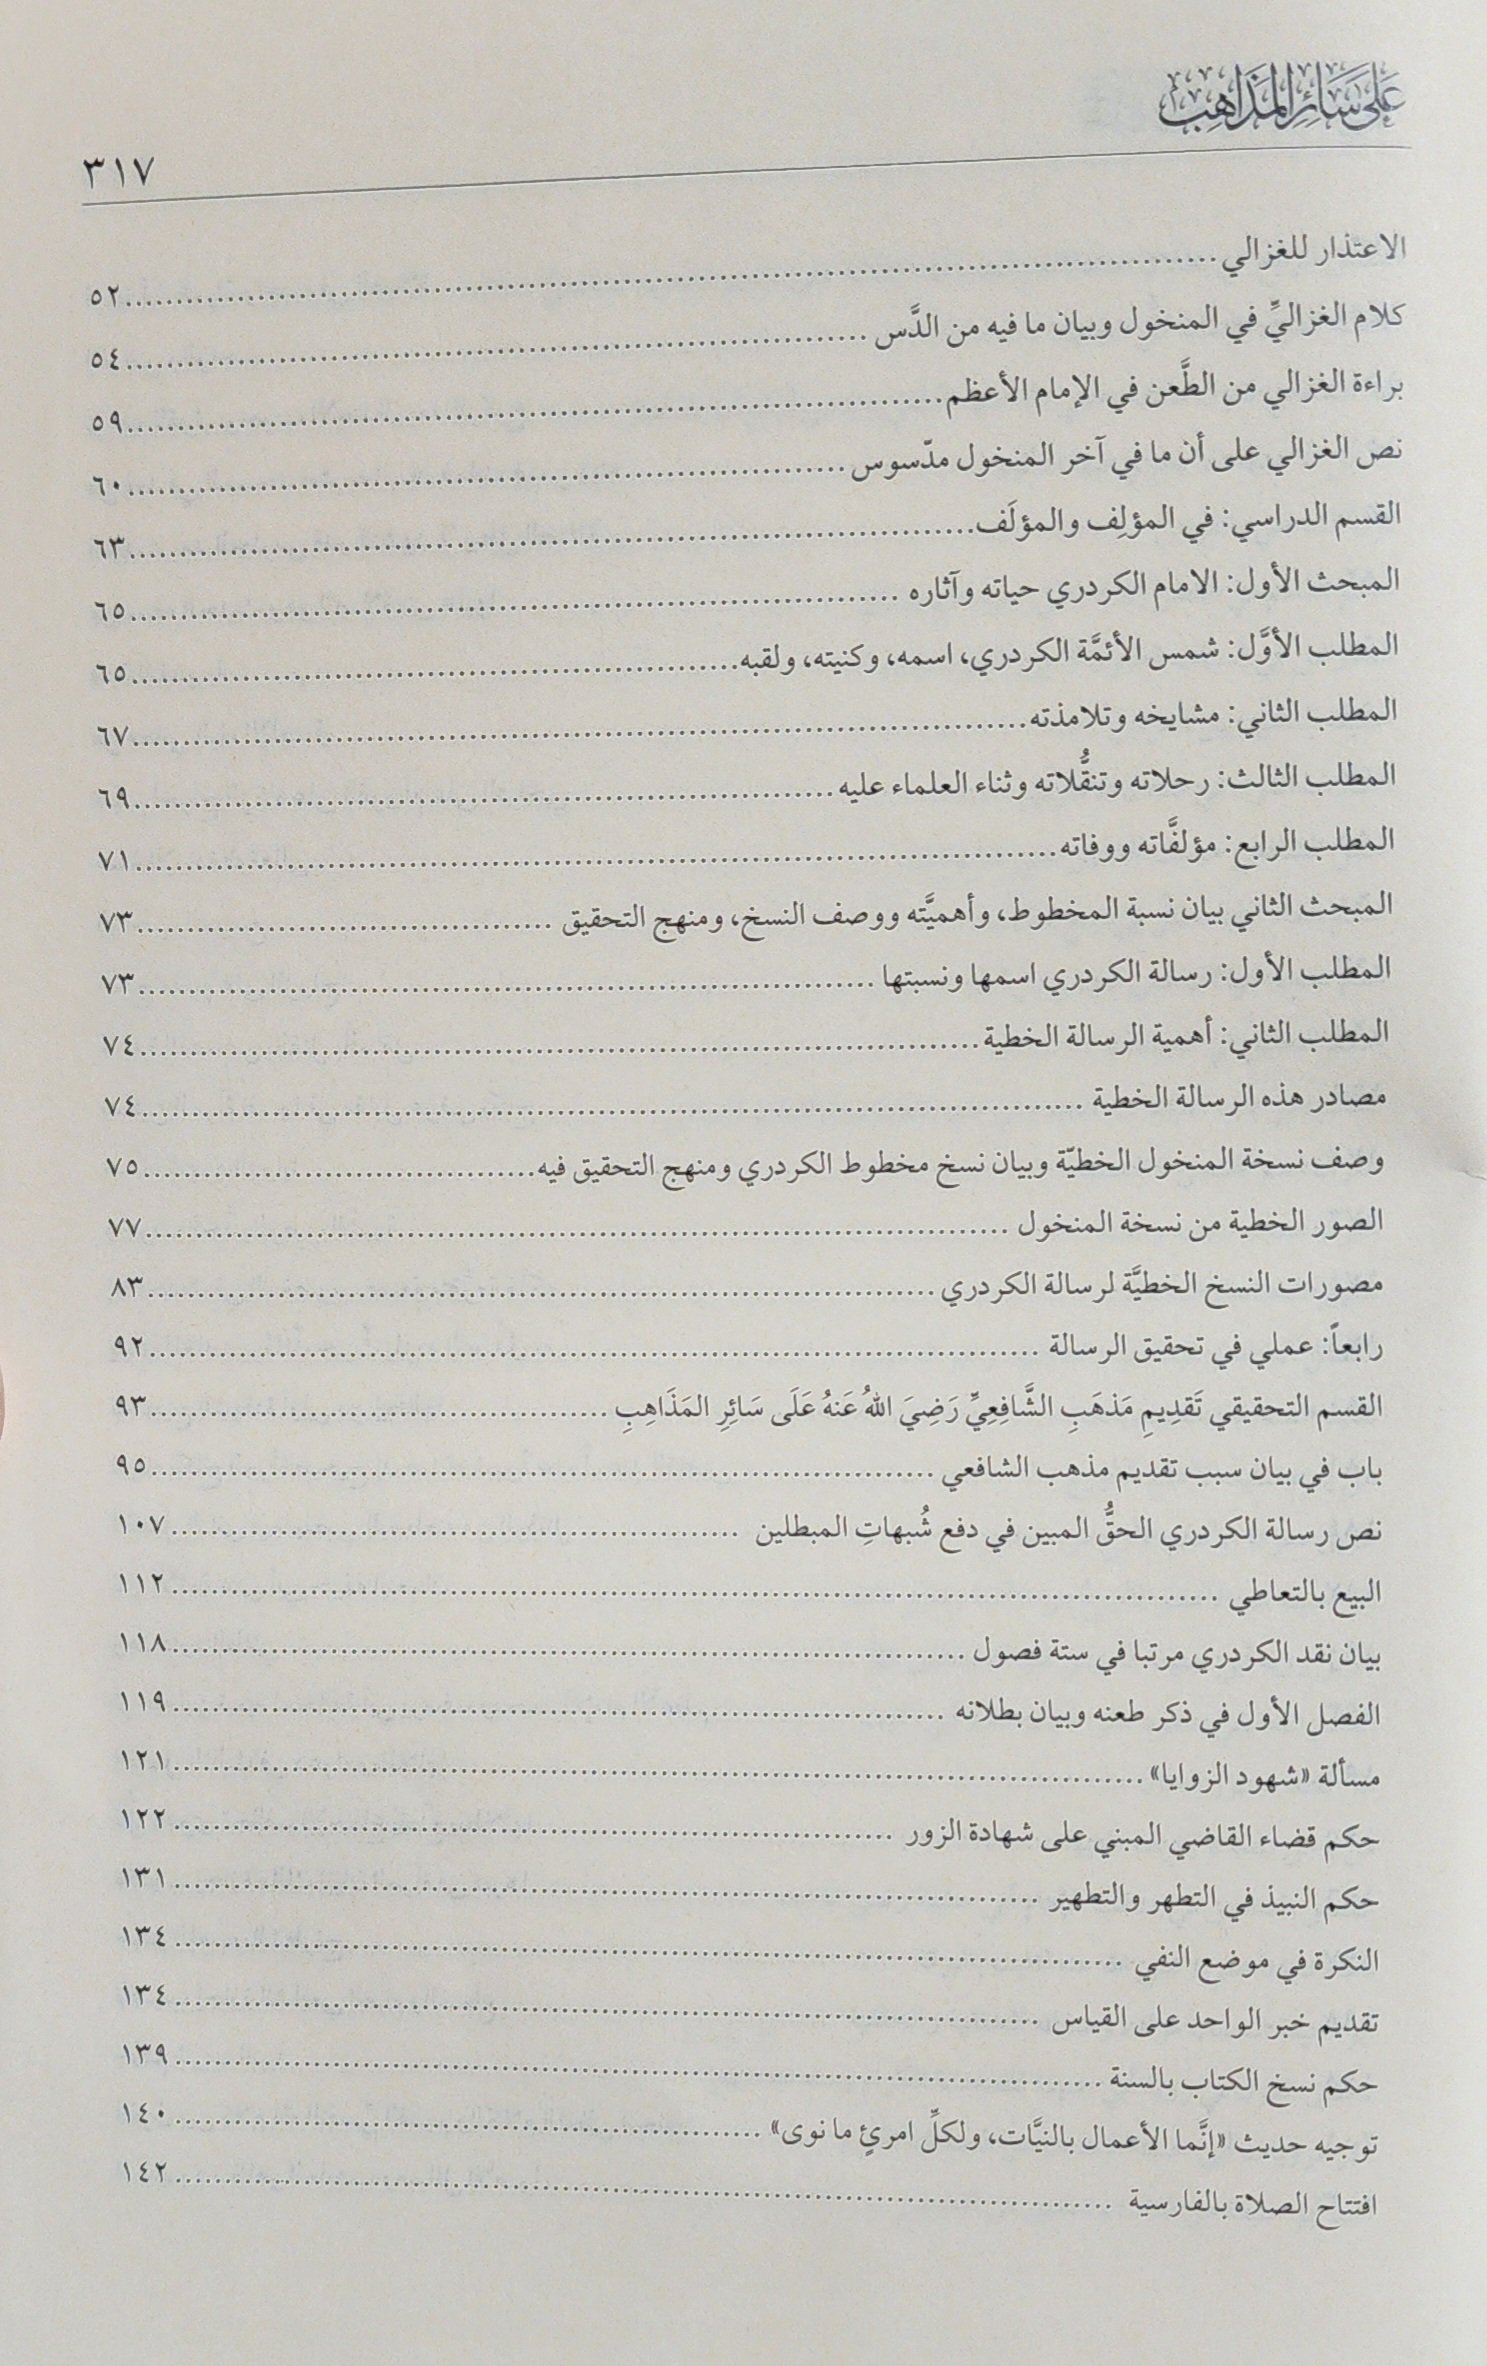 عَلَى سَائِرِ المَذَاهِبِ
٣١٧
الاعتذار للغزالي ٥٢
كلام الغزاليِّ في المنخول وبيان ما فيه من الدَّس ٥٤
براءة الغزالي من الطَّعن في الإمام الأعظم ٥٩
نص الغزالي على أن ما في آخر المنخول مدّسوس ٦٠
القسم الدراسي: في المؤلِف والمؤلَف ٦٣
المبحث الأول: الامام الكردري حياته وآثاره ٦٥
المطلب الأوَّل: شمس الأئمَّة الكردري، اسمه، وكنيته، ولقبه ٦٥
المطلب الثاني: مشايخه وتلامذته ٦٧
المطلب الثالث: رحلاته وتنقُّلاته وثناء العلماء عليه ٦٩
المطلب الرابع: مؤلفَّاته ووفاته ٧١
المبحث الثاني بيان نسبة المخطوط، وأهميَّته ووصف النسخ، ومنهج التحقيق ٧٣
المطلب الأول: رسالة الكردري اسمها ونسبتها ٧٣
المطلب الثاني: أهمية الرسالة الخطية ٧٤
مصادر هذه الرسالة الخطية ٧٤
وصف نسخة المنخول الخطيّة وبيان نسخ مخطوط الكردري ومنهج التحقيق فيه ٧٥
الصور الخطية من نسخة المنخول ٧٧
مصورات النسخ الخطيَّة لرسالة الكردري ٨٣
رابعاً: عملي في تحقيق الرسالة ٩٢
القسم التحقيقي تَقدِيمِ مَذهَبِ الشَّافِعِيِّ رَضِيَ اللهُ عَنهُ عَلَى سَائِرِ المَذَاهِبِ ٩٣
باب في بيان سبب تقديم مذهب الشافعي ٩٥
نص رسالة الكردري الحقُّ المبين في دفع شُبهاتِ المبطلين ١٠٧
البيع بالتعاطي ١١٢
بيان نقد الكردري مرتبا في ستة فصول ١١٨
الفصل الأول في ذكر طعنه وبيان بطلانه ١١٩
مسألة «شهود الزوايا» ١٢١
حكم قضاء القاضي المبني على شهادة الزور ١٢٢
حكم النبيذ في التطهر والتطهير ١٣١
النكرة في موضع النفي ١٣٤
تقديم خبر الواحد على القياس ١٣٤
حكم نسخ الكتاب بالسنة ١٣٩
توجيه حديث «إنَّما الأعمال بالنيَّات، ولكلِّ امرئٍ ما نوى» ١٤٠
افتتاح الصلاة بالفارسية ١٤٢